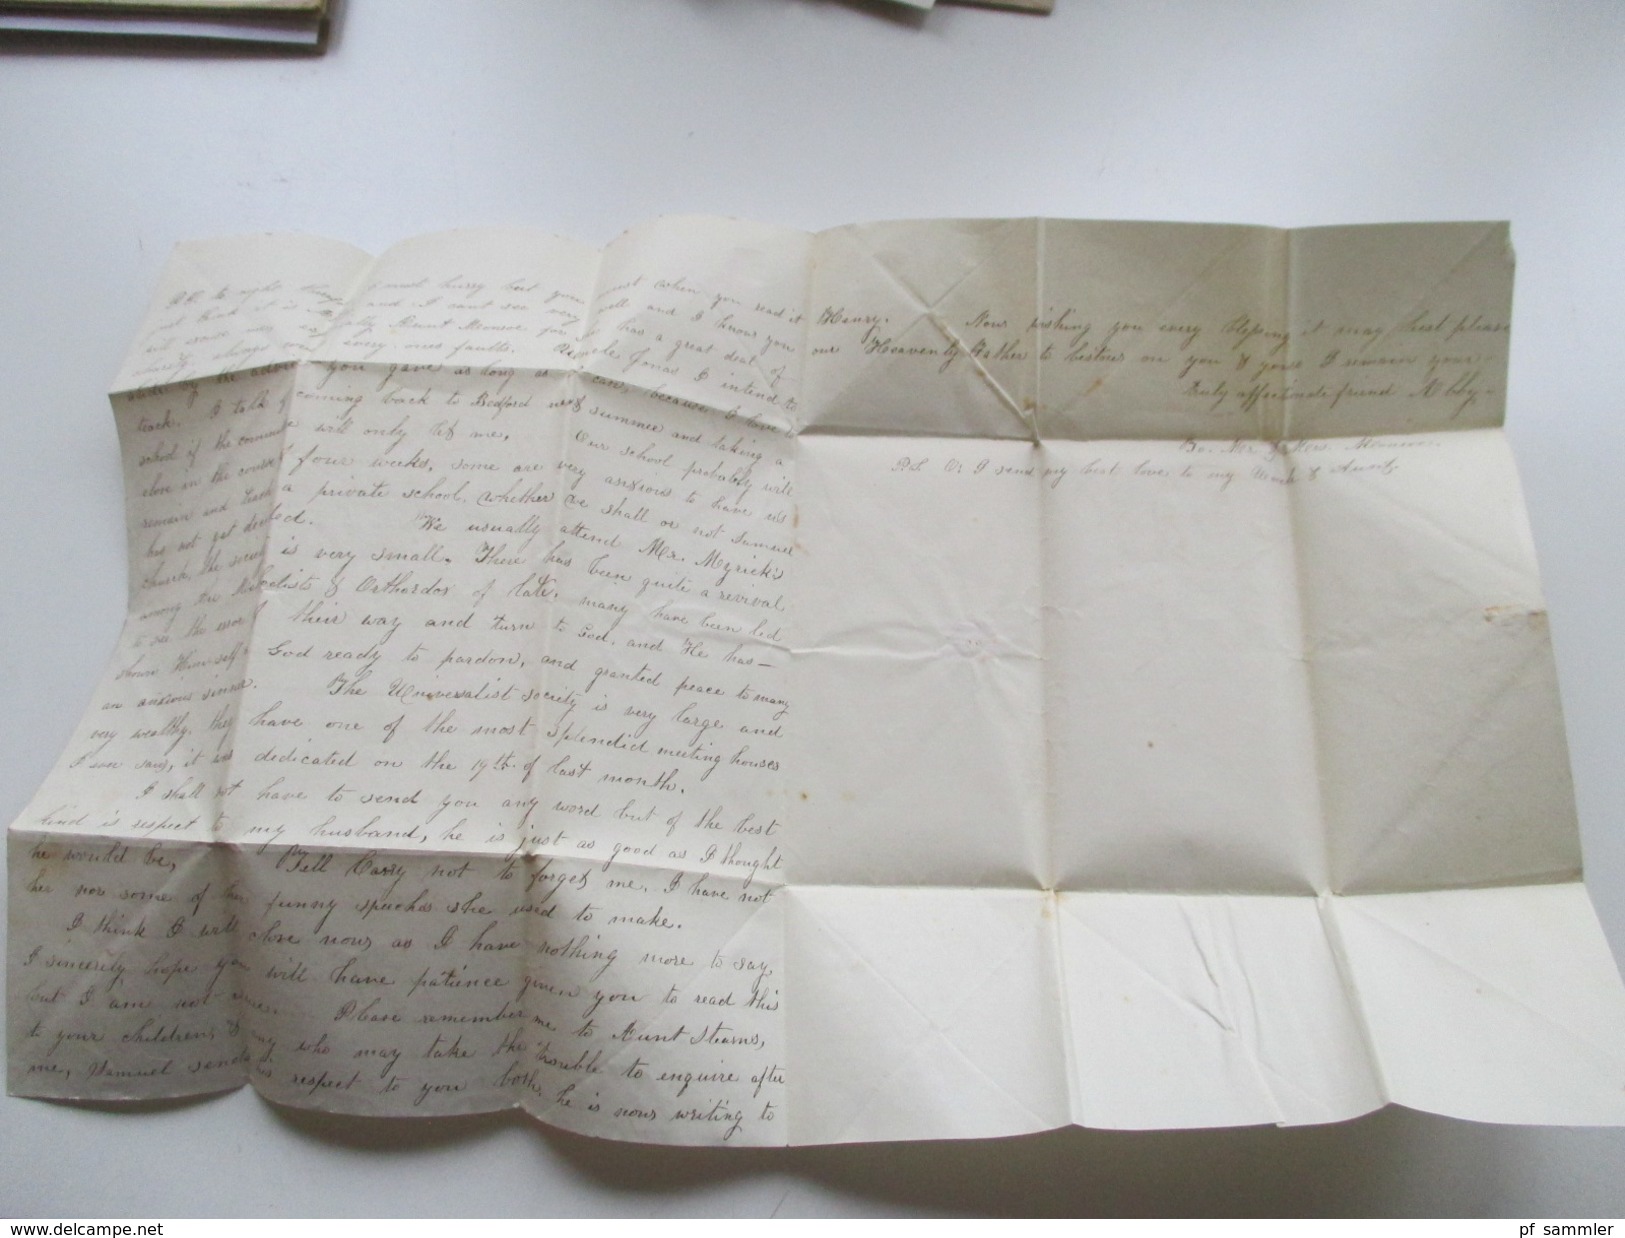 P.S. to night I must hurry but you must when you read it
just think it is and I cant see very well and I know you
will excuse my Aunt Monroe for she has a great deal of
charity, always every ones faults. Uncle Jonas I intend to
abide by the advice you gave as long as I can, because I have to
teach. I talk of coming back to Bedford next summer and taking a
school if the committee will only let me. Our school probably will
close in the course of four weeks, some are very anxious to have us
remain and teach a private school, whether we shall or not Samuel
has not yet decided. We usually attend Mr. Myrick's
church, the society is very small. There has been quite a revival
among the Methodists & Orthordox of late, many have been led
to see the error of their way and turn to God, and He has
shown Himself a God ready to pardon, and granted peace to many
an anxious sinner. The Universalist society is very large and
very wealthy, they have one of the most splendid meeting houses
I ever saw, it was dedicated on the 19th of last month.
I shall not have to send you any word but of the best
kind in respect to my husband, he is just as good as I thought
he would be, Tell Carry not to forget me, I have not
her nor some of her funny speeches she used to make.
I think I will close now as I have nothing more to say,
I sincerely hope you will have patience given you to read this
but I am not Please remember me to Aunt Stearns,
to your children, & any who may take the trouble to enquire after
me, Samuel sends his respect to you both, he is now writing to
Henry. Now wishing you every blessing it may best please
our Heavenly Father to bestow on you & yours I remain your
truly affectionate friend Abby
To. Mr & Mrs. Monroe.
P.S. Or I send my best love to my Uncle & Aunt
www.delcampe.net
pf_sammler